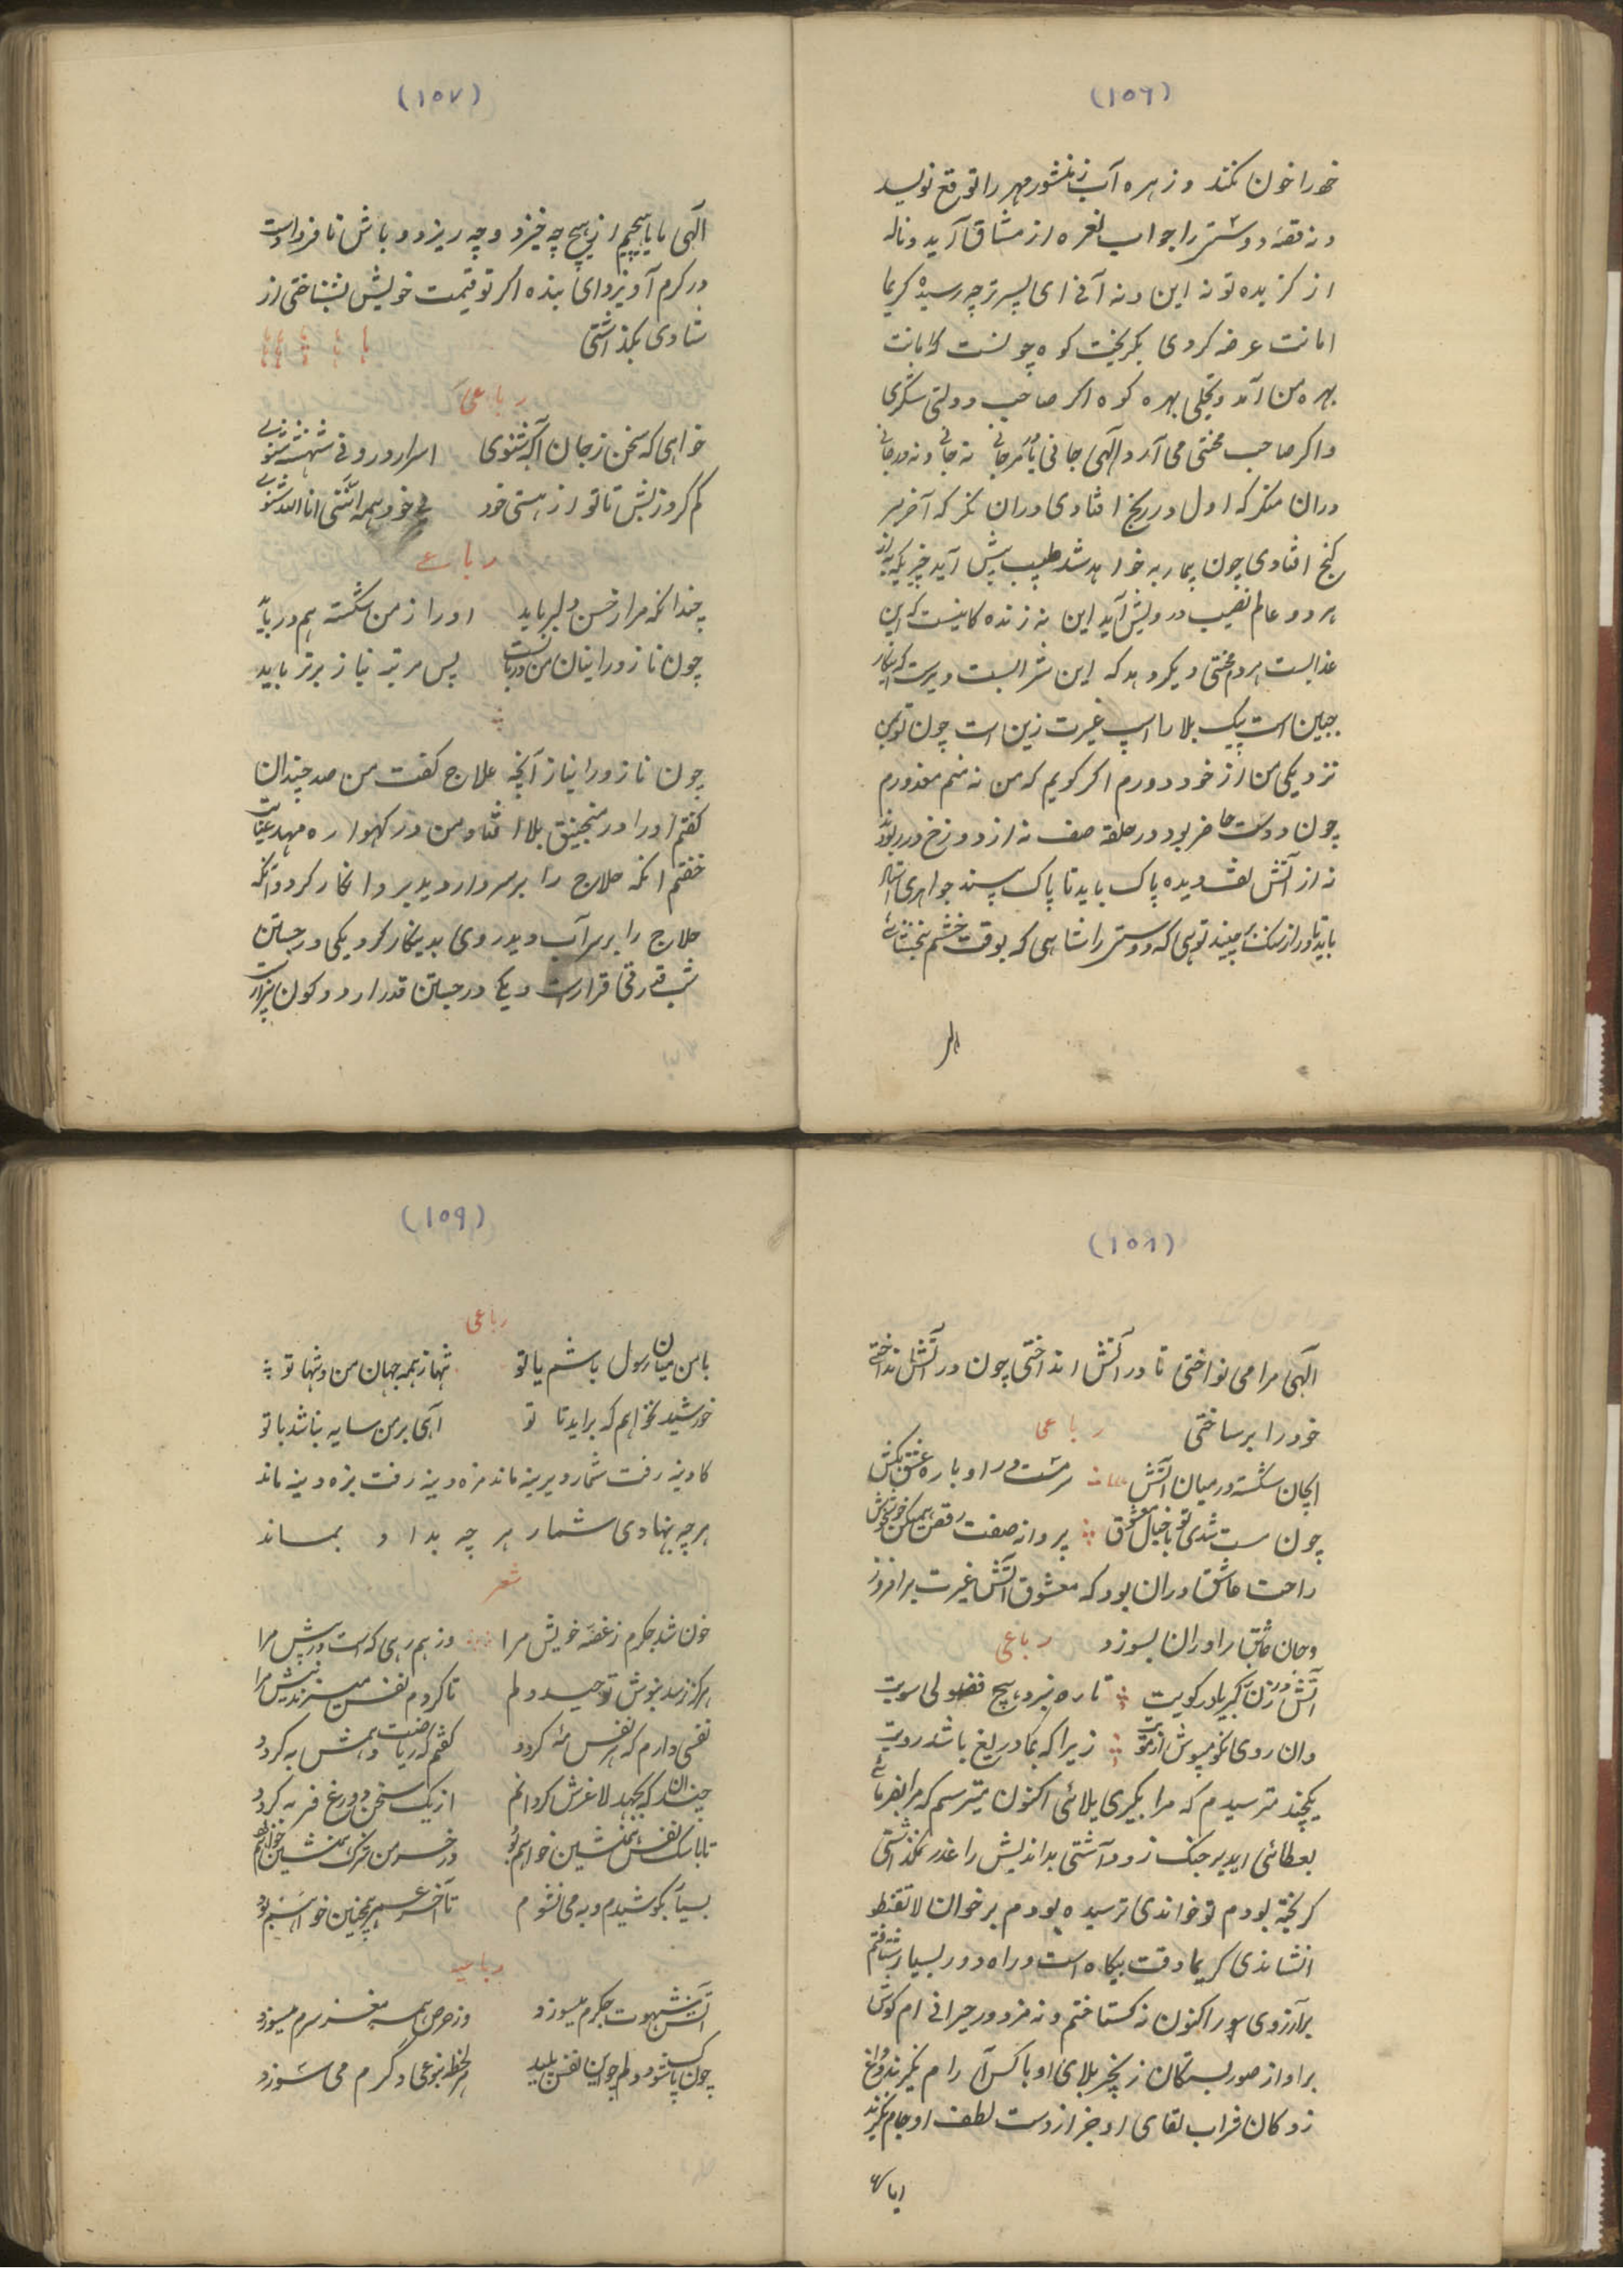 (۱۵۶)
خود را خون نکند و زهره آب نزد منشور مهر را توقیع نویسد
و نه قصه دوستی را جواب نعره از مشتاق آید و ناله
از گزیده تو نه این و نه آنی ای پسر ترا چه رسیده کریما
امانت عرضه کردی بگریخت کوه چونست که امانت
بهره من آمد و تجلی بهره کوه اگر صاحب دولتی شکری
و اگر صاحب محنتی می آرد الهی جانی یا مرجانی نه جانی و نه مرجانی
دران منگر که اول در رنج افتادی دران نگر که آخر بر
گنج افتادی چون بیمار به خواهد شد طبیب پیش آید چیزیکه به از
هر دو عالم نصیب درویش آید این نه زنده کانیست که این
عذابست هر دم محنتی دیگر دهد که این شرابست
جبین است پیک بلا را اسپ غیرت زین است چون تو بمن
نزدیکی من از خود دورم اگر گویم که من نه منم معذورم
چون دوست حاضر بود در حلقه صف نه از دوزخ درد بود
نه از آتش تف دیده پاک باید تا پاک بیند جواهری استاد
باید تا در از سنگ بچیند توئی که دوستی را شاهی که بوقت خشم ببخشائی
الهـ
(۱۵۷)
الهی ما یا هیچیم از هیچ چه خیزد و چه ریزد و باش تا فردا دست
در کرم آویزد ای بنده اگر تو قیمت خویش بشناختی از
شادی بگذاشتی
رباعی
خواهی که سخن ز جان آگه شنوی اسرار درونی شهنشه شنوی
کم گرد ز بیش تا تو از هستی خود بی خود همه انی انا الله شنوی
رباعی
چندانکه مرا ز حسن دلبر باید او را ز من شکسته هم در باید
چون ناز ورا نیاز من دربایست پس مرتبه نیاز برتر باید
چون ناز ورا نیاز آنچه حلاج گفت من صد چندان
گفتم او را در منجنیق بلا افتاد من در گهواره مهد عنایت
خفتم انکه حلاج را بر سر دار دید برو انکار کرد و آنکه
حلاج را بر سر آب دید روی بدین کار کرد یکی در جستن
شب قدر بی قرار است و یکی در جستن قدر از دو کون بیزار است
(۱۵۸)
الهی مرا می نواختی تا در آتش انداختی چون در آتش انداختی
خود را بر ساختی رباعی
ایجان شکسته در میان آتش سرمست در او باره عشق بکش
چون مست شدی تو با خیال معشوق پروانه صفت رقص همیکن خوش خوش
راحت عاشق دران بود که معشوق آتش غیرت برافروزد
و جان عاشق را دران بسوزد رباعی
آتش در زن ز کبریا در کویت تا ره نبرد هیچ فضولی سویت
وان روی نکو بپوش از ما زیرا که بما دریغ باشد رویت
یکچند ترسیدم که مرا بگیری ببلائی اکنون میترسم که مرا بفریبی
بعطائی ای دیر جنگ زود آشتی بداندیش را عذر نگذاشتی
گریخته بودم تو خواندی ترسیده بودم بر خوان لا تقنطوا
نشاندی کریما وقت بیگاه است و راه دور بسیار شتافتم
بر آرزوی سور اکنون نه گستاختم و نه مزدور حیرانی ام گوش
بر آواز صور بستگان زنجیر بلای او با کس آرام نگیرند و داغ
زدگان فراب لقای او جز از دست لطف او جام نگیرند
(۱۵۹)
رباعی
با من میان رسول باشم یا تو تنها ز همه جهان من و تنها تو
خورشید نخواهم که براید تا تو آئی بر من سایه نباشد با تو
کا دینه رفت شمار دیرینه ماند مزه دینه رفت بزه دینه ماند
هر چه نهادی شمار هر چه بداد و بماند
شعر
خون شد جگرم ز غصه خویش مرا وز بیم رهی که است در پیش مرا
هرگز نرسد بنوش توحید دلم تا کژدم نفس میزند نیش مرا
نفسی دارم که هر نفس مه گردد گفتم که ریاضت دهمش به گردد
چندان که بجهد لاغرش گردانم از یک سخن دروغ فربه گردد
تا با سگ نفس همنشین خواهم بود در خرمن شرک خوشه چین خواهم بود
بسیار بکوشیدم و به می نشوم تا آخر عمر همچنین خواهم بود
رباعیه
آتش شهوت جگرم میسوزد وز حرص همه مغز سرم میسوزد
چون پاک شود دلم چو این نفس پلید هر لحظه بنوعی دگرم می سوزد